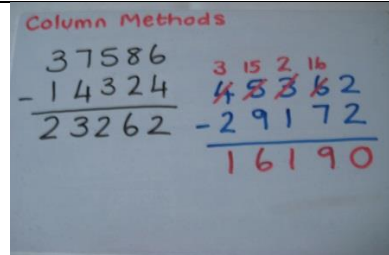 Column Methods
37586
- 14324
23262
3 15 2 16
45362
- 29172
16190